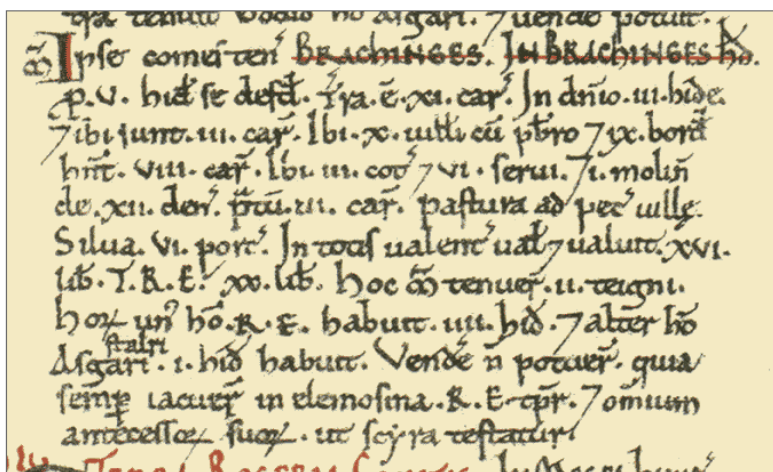 tra tenuit homo Asgari. ⁊ uende potuit.
M̃ Ipse comes ten' BRACHINGES. IN BRACHINGES HD.
p. V. hid se defd'. Tra. ē. xi. car'. In dñio. iii. hide.
⁊ ibi sunt. iii. car'. Ibi. x. uilli cū pbro ⁊ ix. bord'
hñt. viii. car'. Ibi. iii. cot' ⁊ vi. serui. ⁊ i. molin'
de. xii. den'. ptū. iii. car'. pastura ad pec' uille.
Silua. vi. porc'. In totis ualent' ual' ⁊ ualuit. xvi.
lib. T.R.E.' xx. lib. hoc M̃ tenuer'. ii. teigni.
hoꝝ un' hō. R.E. habuit. iiii. hid'. ⁊ alter hō
Asgari stalri. i. hid habuit. Vende' ñ potuer'. quia
semp iacuer' in elemosina. R.E. tpr'. ⁊ omium
antecessoꝝ suoꝝ. ut scyra testatur.
TERRA ROGERII COMITIS